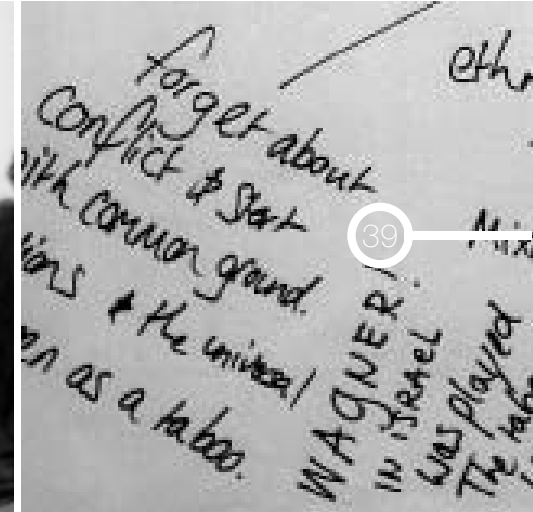 forget about
conflict & start
with common ground.
& the universal
as a taboo.
39
WAGNER!
IN ISRAEL
was played
The